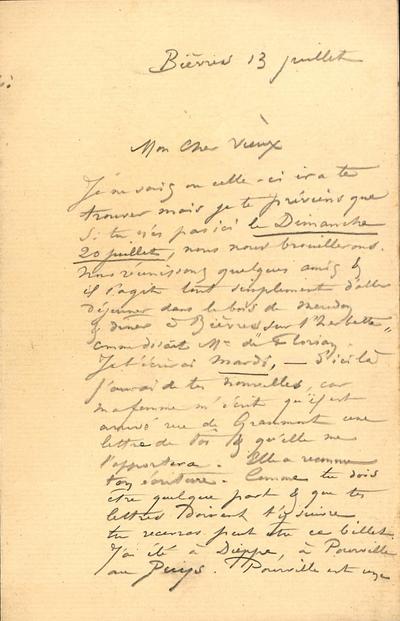 Bièvres 13 juillet
Mon cher vieux
Je ne sais où celle-ci ira te
trouver mais je te préviens que
si tu n'es pas ici le Dimanche
20 juillet, nous nous brouillerons.
Nous réunissons quelques amis &
il s'agit tout simplement d'aller
déjeuner dans le bois de Meudon
& diner à Bièvres "sur l'herbette"
comme disait Mr de Florian.
Je t'écrirai Mardi, – D'ici là
j'aurai de tes nouvelles, car
ma femme m'écrit qu'il est
arrivé rue de Grammont une
lettre de toi & qu'elle me
l'apportera. Elle a reconnu
ton écriture. Comme tu dois
être quelque part & que tes
lettres doivent te suivre
tu recevras peut être ce billet.
J'ai été à Dieppe, à Pourville
au Puys. Pourville est une